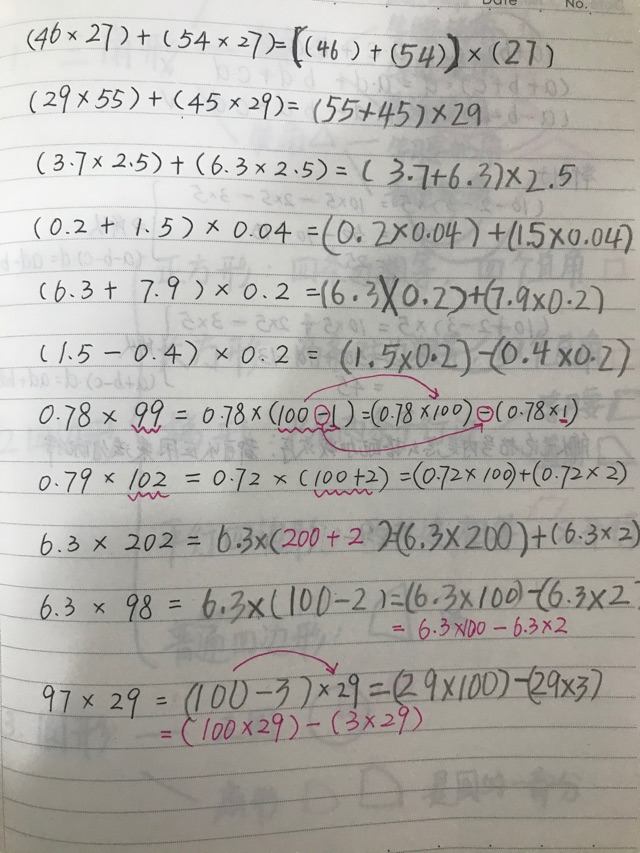 Date No.
(46×27)+(54×27)=[(46)+(54)]×(27)
(29×55)+(45×29)=(55+45)×29
(3.7×2.5)+(6.3×2.5)=(3.7+6.3)×2.5
(0.2+1.5)×0.04=(0.2×0.04)+(1.5×0.04)
(6.3+7.9)×0.2=(6.3×0.2)+(7.9×0.2)
(1.5-0.4)×0.2=(1.5×0.2)-(0.4×0.2)
0.78×99=0.78×(100-1)=(0.78×100)-(0.78×1)
0.79×102=0.72×(100+2)=(0.72×100)+(0.72×2)
6.3×202=6.3×(200+2)=(6.3×200)+(6.3×2)
6.3×98=6.3×(100-2)=(6.3×100)-(6.3×2
=6.3×100-6.3×2
97×29=(100-3)×29=(29×100)-(29×3)
=(100×29)-(3×29)